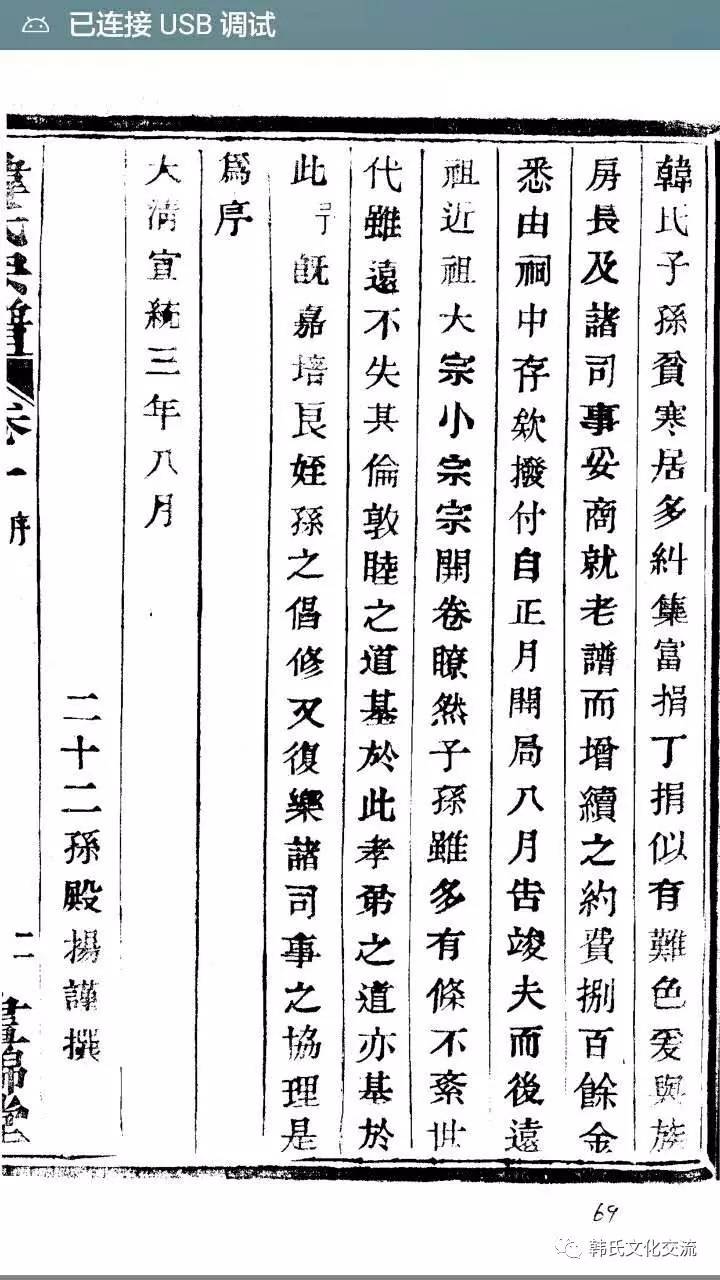 已连接 USB 调试
韓氏子孫貧寒居多糾集富捐丁捐似有難色爰與族
房長及諸司事妥商就老譜而增續之約費捌百餘金
悉由祠中存欸撥付自正月開局八月告竣夫而後遠
祖近祖大宗小宗宗開卷瞭然子孫雖多有條不紊世
代雖遠不失其倫敦睦之道基於此孝弟之道亦基於
此 既嘉培良姪孫之倡修又復樂諸司事之協理是
爲序
大清宣統三年八月
二十二孫殿揚謹撰
卷一 序
二
69
韩氏文化交流